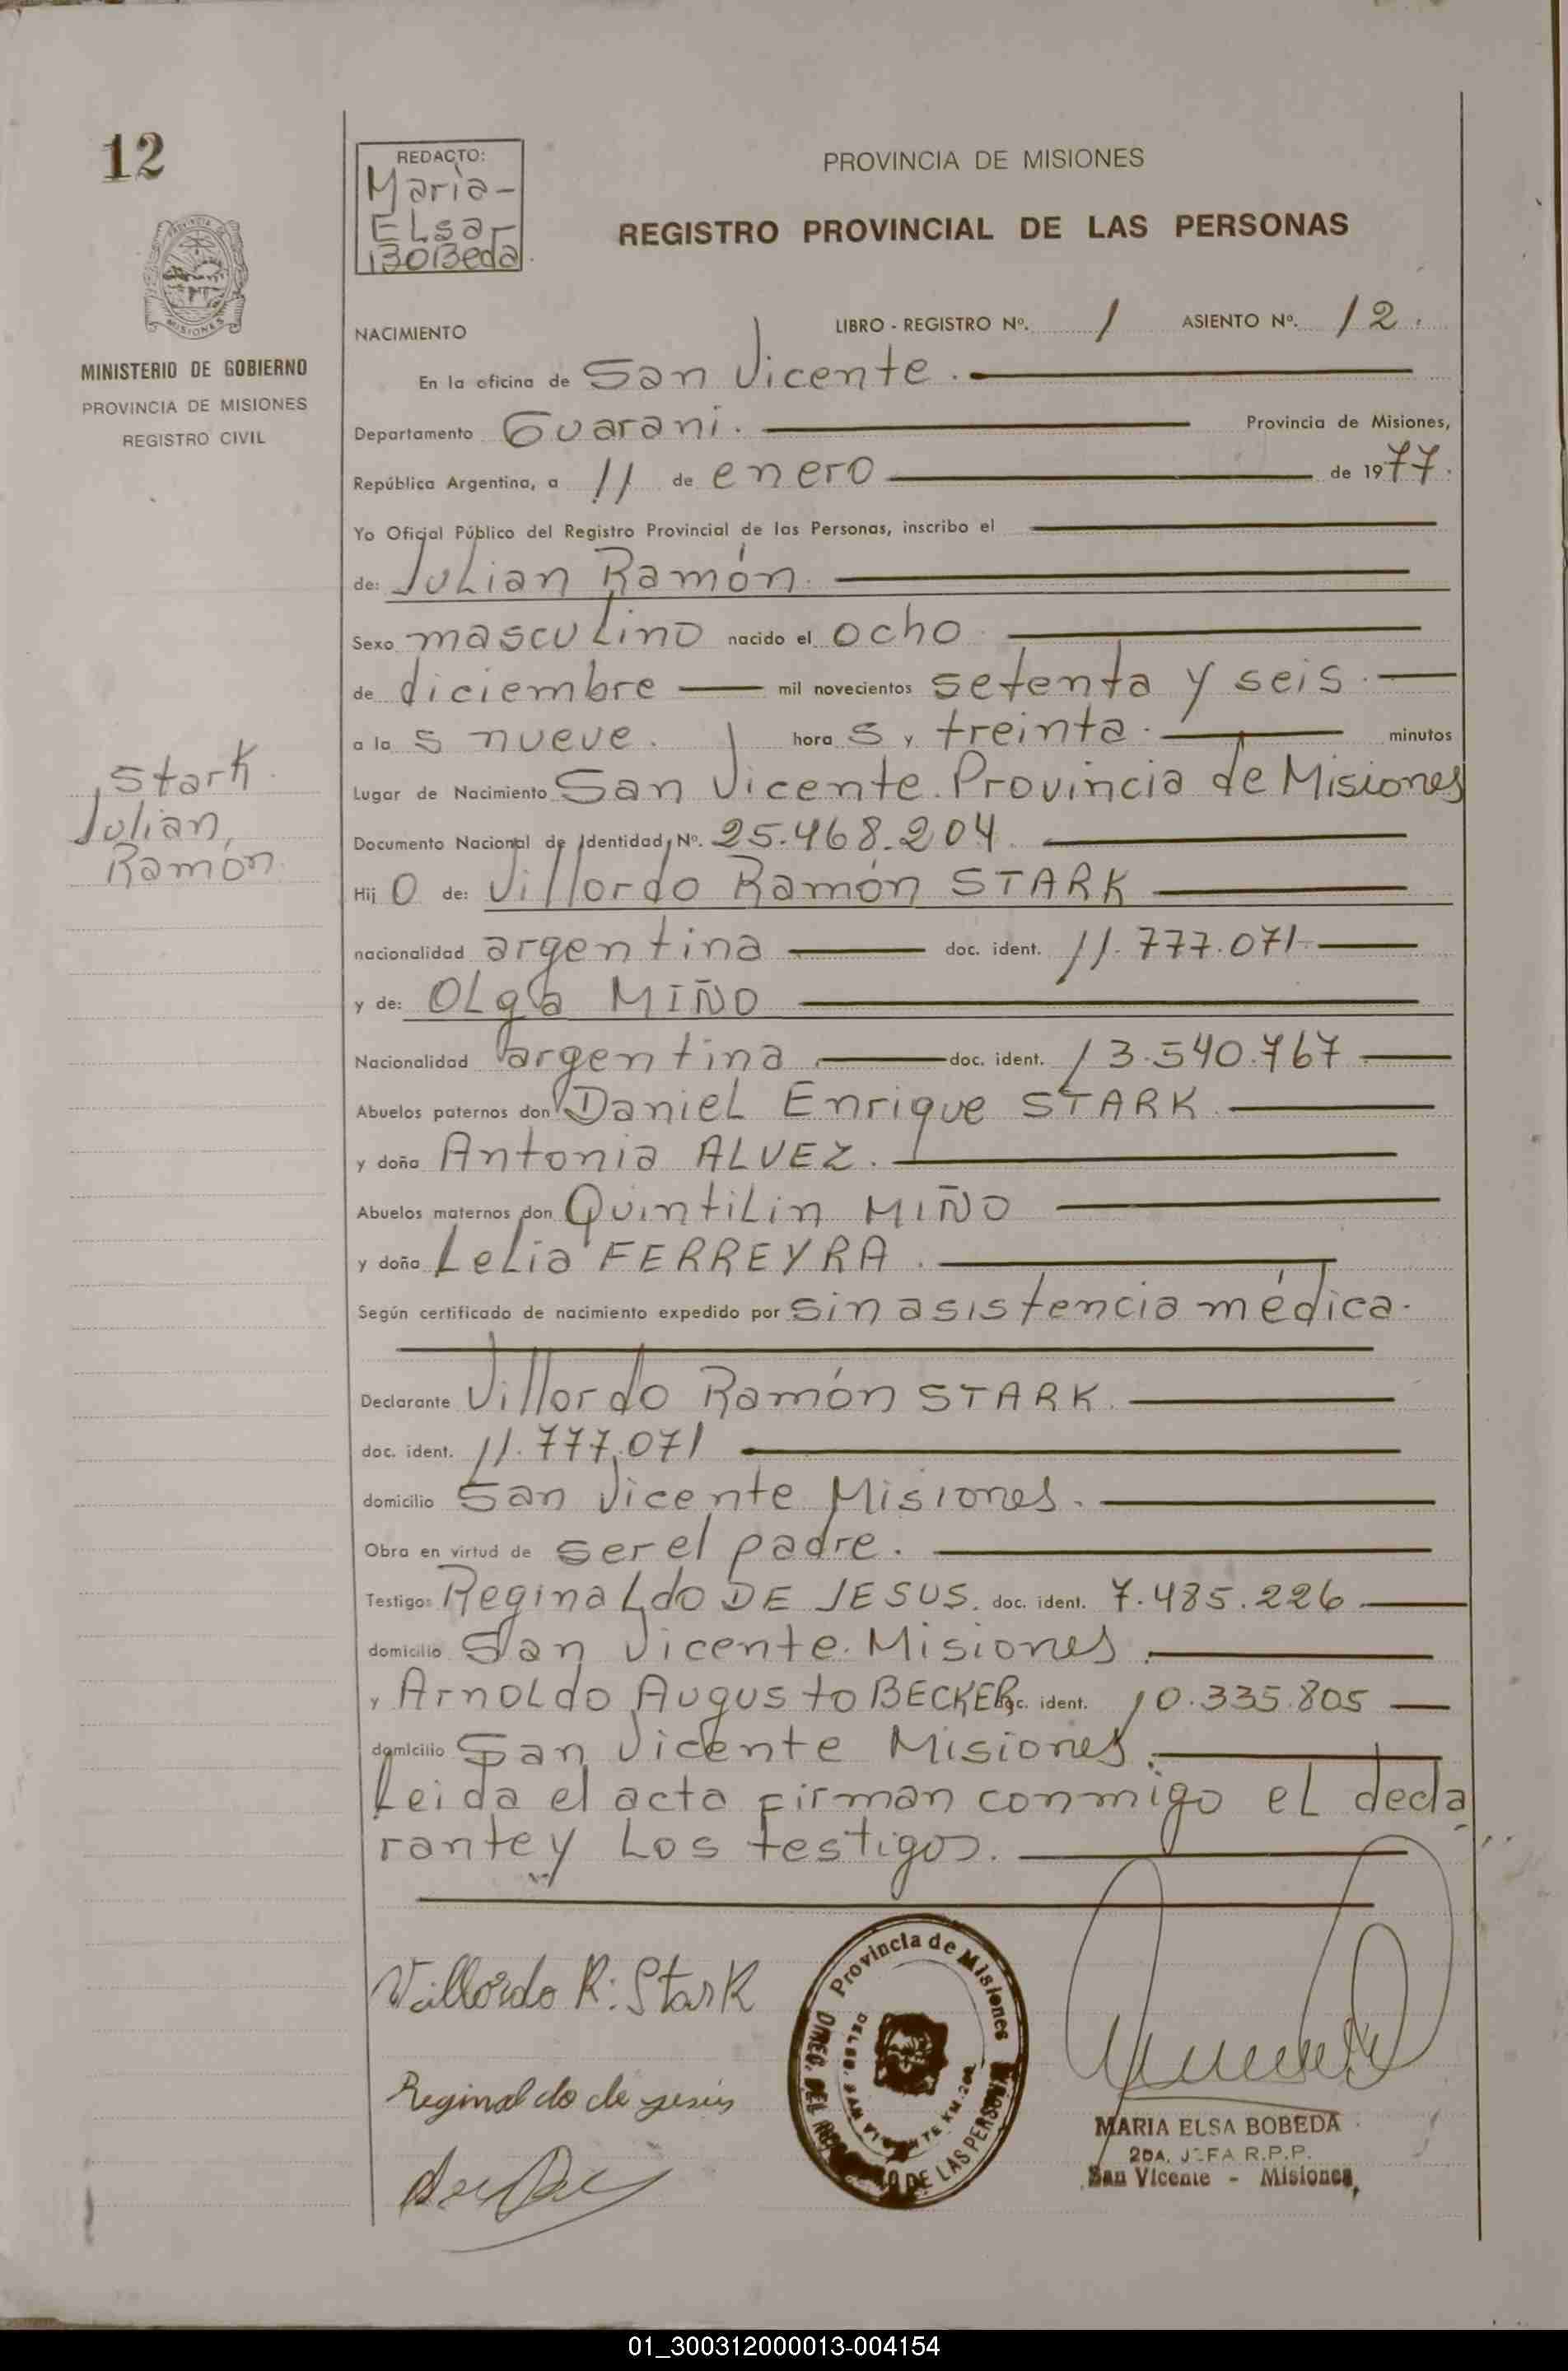 12
REDACTO:
Maria-
Elsa-
BoBeda.
PROVINCIA DE MISIONES
REGISTRO PROVINCIAL DE LAS PERSONAS
MINISTERIO DE GOBIERNO
PROVINCIA DE MISIONES
REGISTRO CIVIL
NACIMIENTO LIBRO - REGISTRO Nº. 1 ASIENTO Nº. 12.
En la oficina de San Vicente.
Departamento Guarani. Provincia de Misiones,
República Argentina, a 11 de enero de 1977.
Yo Oficial Público del Registro Provincial de las Personas, inscribo el
de: Julian Ramón.
Sexo masculino nacido el ocho
de diciembre mil novecientos setenta y seis.
a las nueve. horas y treinta. minutos
Stark
Julian
Ramón
Lugar de Nacimiento San Vicente. Provincia de Misiones
Documento Nacional de Identidad, Nº. 25.468.204.
Hijo de: Villordo Ramón STARK
nacionalidad argentina doc. ident. 11.777.071
y de: Olga MIÑO
Nacionalidad argentina doc. ident. 13.540.767
Abuelos paternos don Daniel Enrique STARK.
y doña Antonia ALVEZ.
Abuelos maternos don Quintilin MIÑO
y doña Lelia FERREYRA.
Según certificado de nacimiento expedido por sin asistencia médica.
Declarante Villordo Ramón STARK.
doc. ident. 11.777.071
domicilio San Vicente Misiones.
Obra en virtud de ser el padre.
Testigo: Reginaldo DE JESUS. doc. ident. 7.485.226
domicilio San Vicente. Misiones.
y Arnoldo Augusto BECKER doc. ident. 10.335.805
domicilio San Vicente Misiones.
Leida el acta firman conmigo el decla
rante y los testigos.
Villordo R. Stark
Reginaldo de jesus
Provincia de Misiones
DE LAS PERSONAS
MARIA ELSA BOBEDA
2DA. JEFA R.P.P.
San Vicente - Misiones
01_300312000013-004154